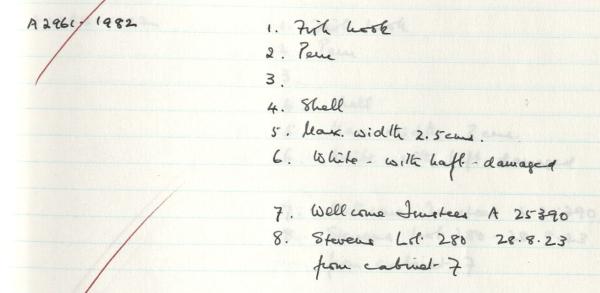 A2961-1982
1. Fish hook
2. Peru
3.
4. Shell
5. Max. width 2.5cms.
6. White - with haft - damaged
7. Wellcome Trustees A 25390
8. Stevens Lot 280 28.8.23
from cabinet 7